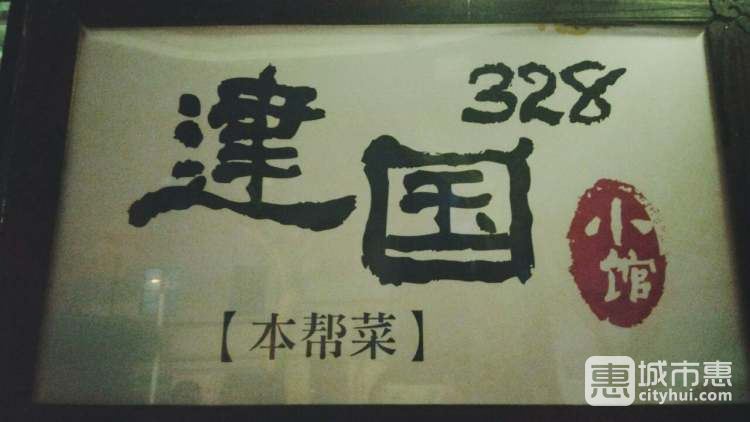 建国
328
小馆
【本帮菜】
惠 城市惠
cityhui.com